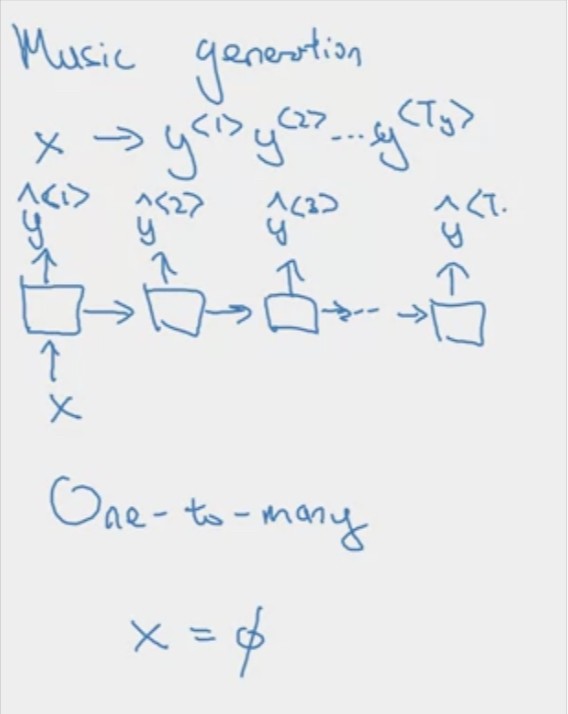 Music generation
x → y<1> y<2> ... y<Ty>
ŷ<1> ŷ<2> ŷ<3> ŷ<T.
x
One-to-many
x = ϕ